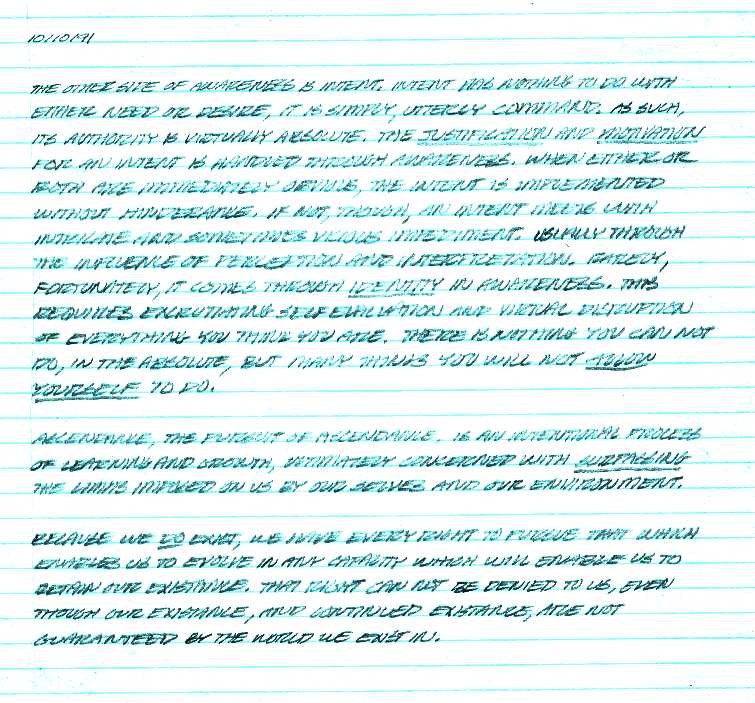 10/10/91
THE OTHER SIDE OF AWARENESS IS INTENT. INTENT HAS NOTHING TO DO WITH
EITHER NEED OR DESIRE, IT IS SIMPLY, UTTERLY COMMAND. AS SUCH,
ITS AUTHORITY IS VIRTUALLY ABSOLUTE. THE JUSTIFICATION AND MOTIVATION
FOR AN INTENT IS HANDLED THROUGH AWARENESS. WHEN EITHER OR
BOTH ARE IMMEDIATELY OBVIOUS, THE INTENT IS IMPLEMENTED
WITHOUT HINDERANCE. IF NOT, THOUGH, AN INTENT MEETS WITH
INTRICATE AND SOMETIMES VICIOUS IMPEDIMENT. USUALLY THROUGH
THE INFLUENCE OF PERCEPTION AND INTERPRETATION. RARELY,
FORTUNATELY, IT COMES THROUGH IDENTITY IN AWARENESS. THIS
REQUIRES EXCRUTIATING SELF EVALUATION AND VIRTUAL DISRUPTION
OF EVERYTHING YOU THINK YOU ARE. THERE IS NOTHING YOU CAN NOT
DO, IN THE ABSOLUTE, BUT MANY THINGS YOU WILL NOT ALLOW
YOURSELF TO DO.
ASCENDANCE, THE PURSUIT OF ASCENDANCE, IS AN INTENTIONAL PROCESS
OF LEARNING AND GROWTH, ULTIMATELY CONCERNED WITH SURPASSING
THE LIMITS IMPOSED ON US BY OUR SELVES AND OUR ENVIRONMENT.
BECAUSE WE DO EXIST, WE HAVE EVERY RIGHT TO PURSUE THAT WHICH
ENABLES US TO EVOLVE IN ANY CAPACITY WHICH WILL ENABLE US TO
RETAIN OUR EXISTANCE. THAT RIGHT CAN NOT BE DENIED TO US, EVEN
THOUGH OUR EXISTANCE, AND CONTINUED EXISTANCE, ARE NOT
GUARANTEED BY THE WORLD WE EXIST IN.